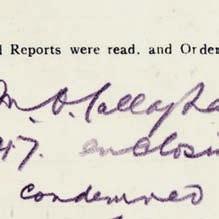 l Reports were read, and Orde
M. O. Callagha
47. enclosin
condemned